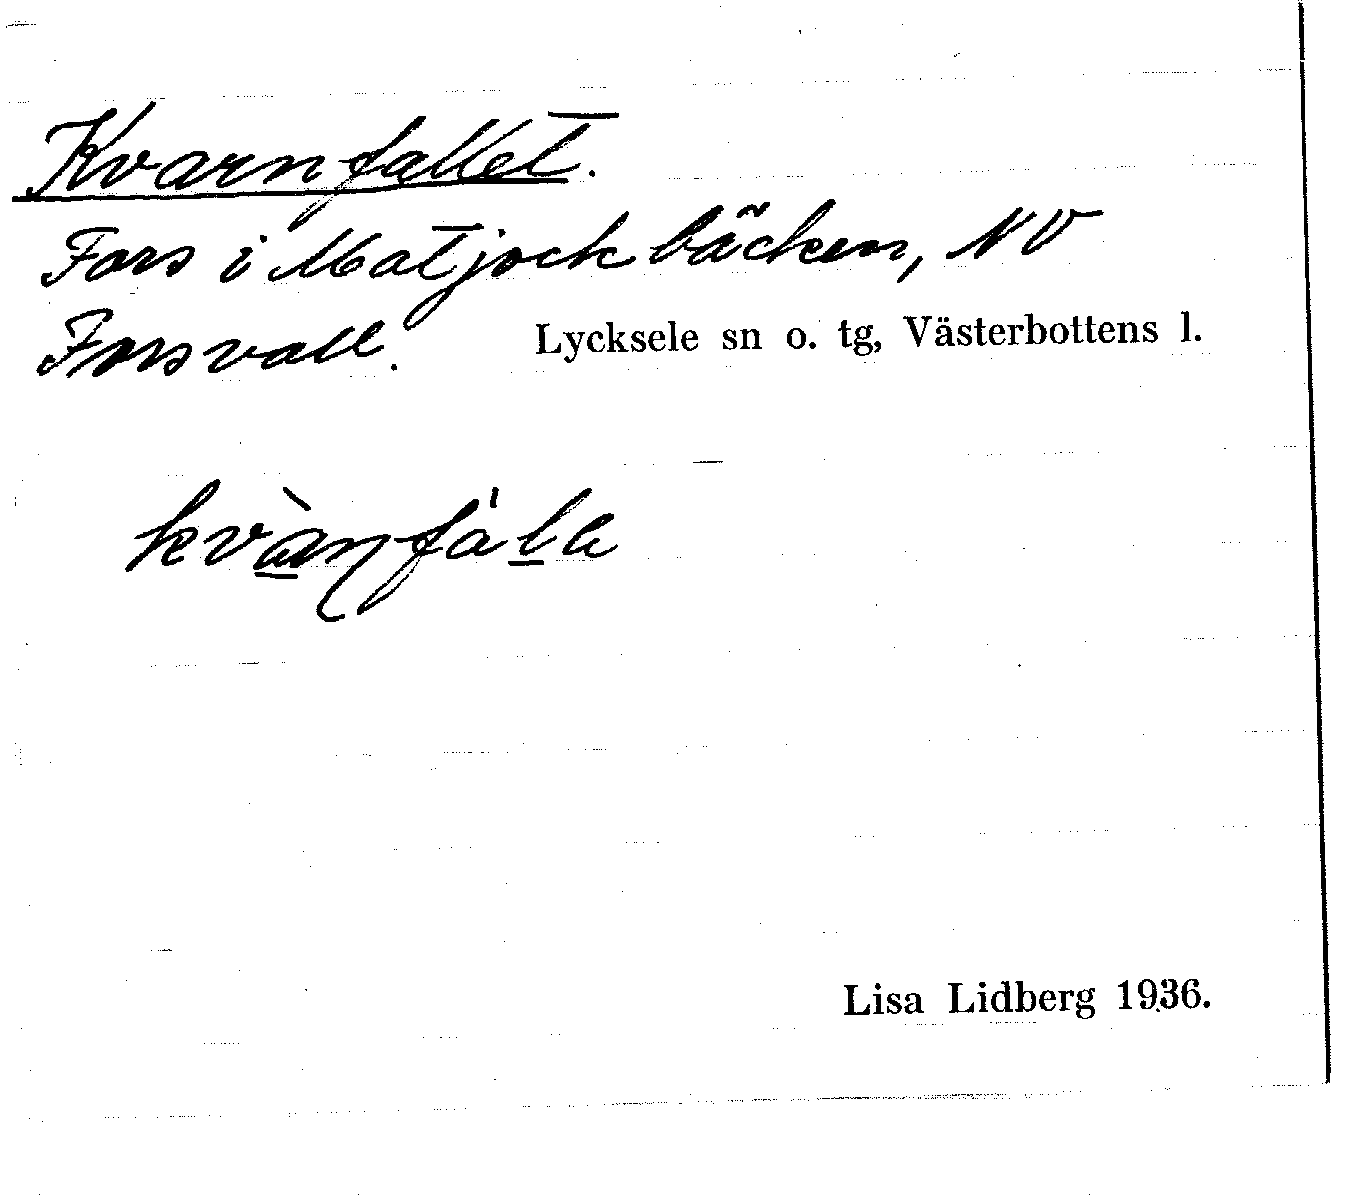 Kvarnfallet.
Fors i Matjockbäcken, NV
Forsvall.
Lycksele sn o. tg, Västerbottens l.
kvànfálɐ
Lisa Lidberg 1936.